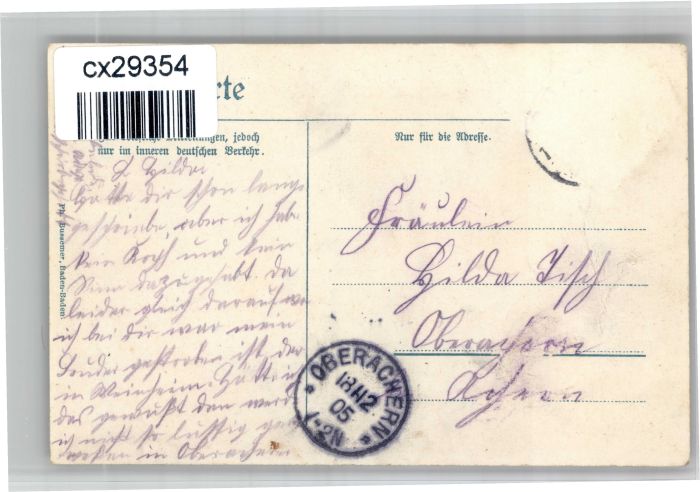 cx29354
rte
jedoch
nur im inneren deutschen Verkehr.
Nur für die Adresse.
L Hilda!
Hätte dir schon lange
geschriebe, aber ich habe
kein Kopf und kein
Sinn dazu gehabt. Da
leider gleich darauf wo
ich bei dir war mein
Bruder gestorben ist, der
in Weinheim. Hätte ich
das gewußt dan werd
ich nicht so lustig ge
wesen in Oberachern
Ph. Bussemer, Baden-Baden.
Fräulein
Hilda Fisch
Oberachern
Achern
* OBERACHERN *
05